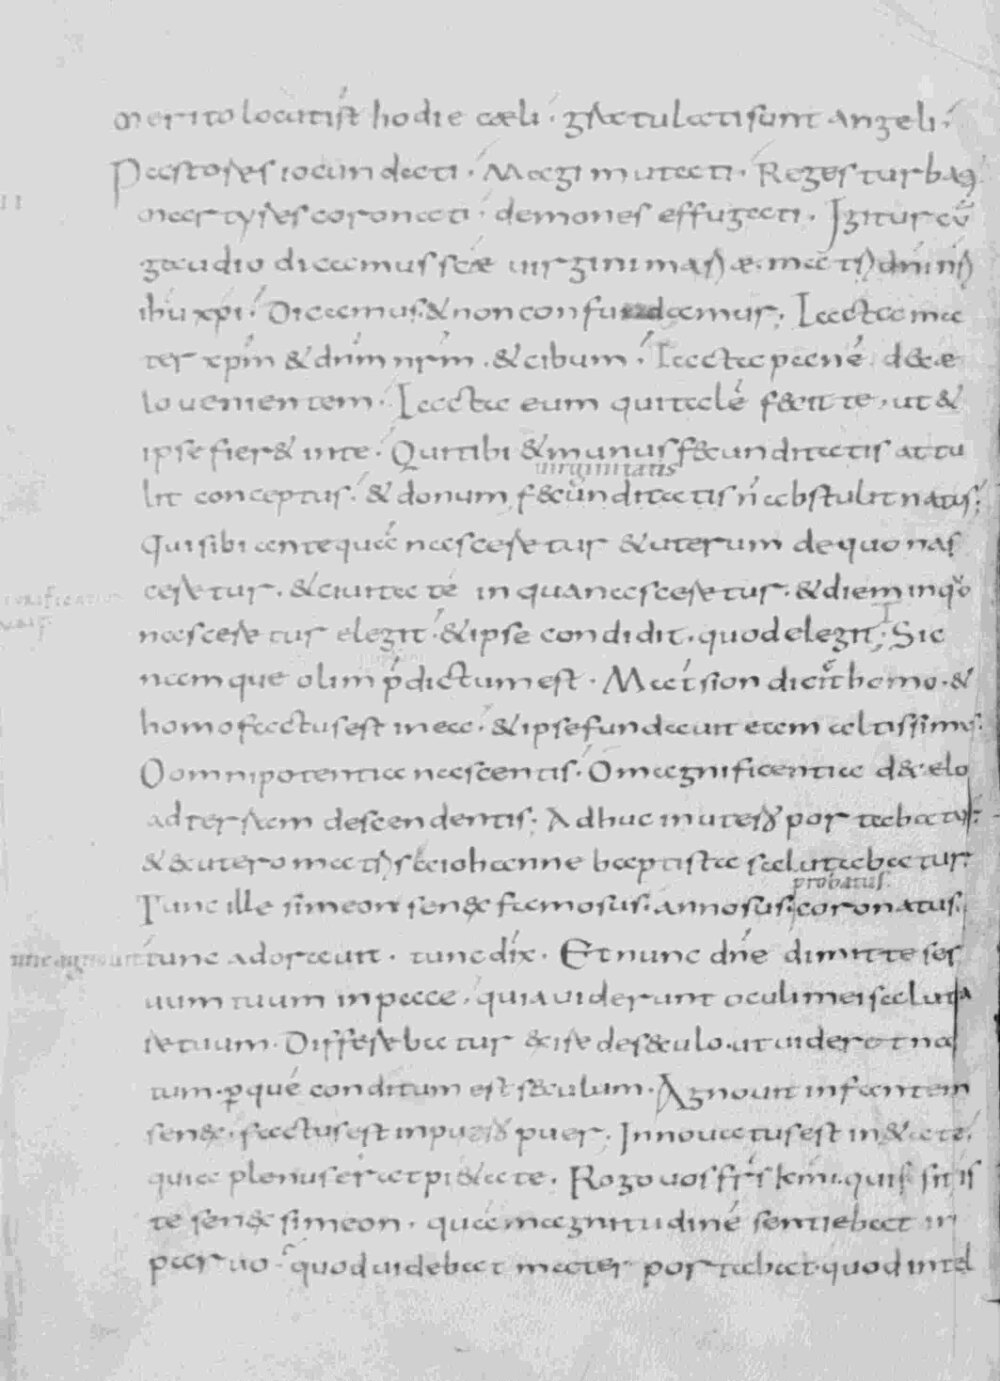 merito locuti s̄t hodie cæli · gratulati sunt angeli ·
Pastores iocundati · Magi mutati · Reges turbaq;
II
martyres coronati · demones effugati · Igitur cū
gaudio dicamus scæ uirgini mariæ · matri dn̄i nr̄i
ihū xpī · Dicamus & non confundamur · Lacta ma
ter xpm̄ & dnm̄ nrm̄ · & cibum · Lacta panē de cæ
lo uenientem · Lacta eum qui talē fecit te · ut &
ipse fieret in te · Qui tibi & munus fecunditatis attu
uirginitatis
lit conceptus · & donum fecunditatis n̄ abstulit natus ·
Qui sibi antequā nasceretur & uterum de quo nas
ceretur · & ciuitatē in qua nasceretur · & diem in quo
nasceretur elegit · & ipse condidit · quod elegit · Sic
namque olim p̄dictum est · Mat̄ sion dicit homo · &
homo factus est in ea · & ipse fundauit eam altissimus ·
O omnipotentia nascentis · O magnificentia de cælo
ad terram descendentis · Adhuc in utero portabatur ·
& ex utero matris a iohanne baptista salutabatur ·
probatus
Tunc ille simeon senex famosus · annosus · coronatus ·
tunc agnouit tunc adorauit · tunc dix̄ · Et nunc dn̄e dimitte ser
uum tuum in pace · quia uiderunt oculi mei saluta
re tuum · Differebatur exire de sæculo · ut uideret na
tum · per quē conditum est sæculum · Agnouit infantem
senex · factus est in puero puer · Innouatus est in ætate ·
quia plenus erat pietate · Rogo uos fr̄s km̄i · quis sit is
te senex simeon · quā magnitudinē sentiebat in
paruo · quod uidebat mater portabat · quod intel